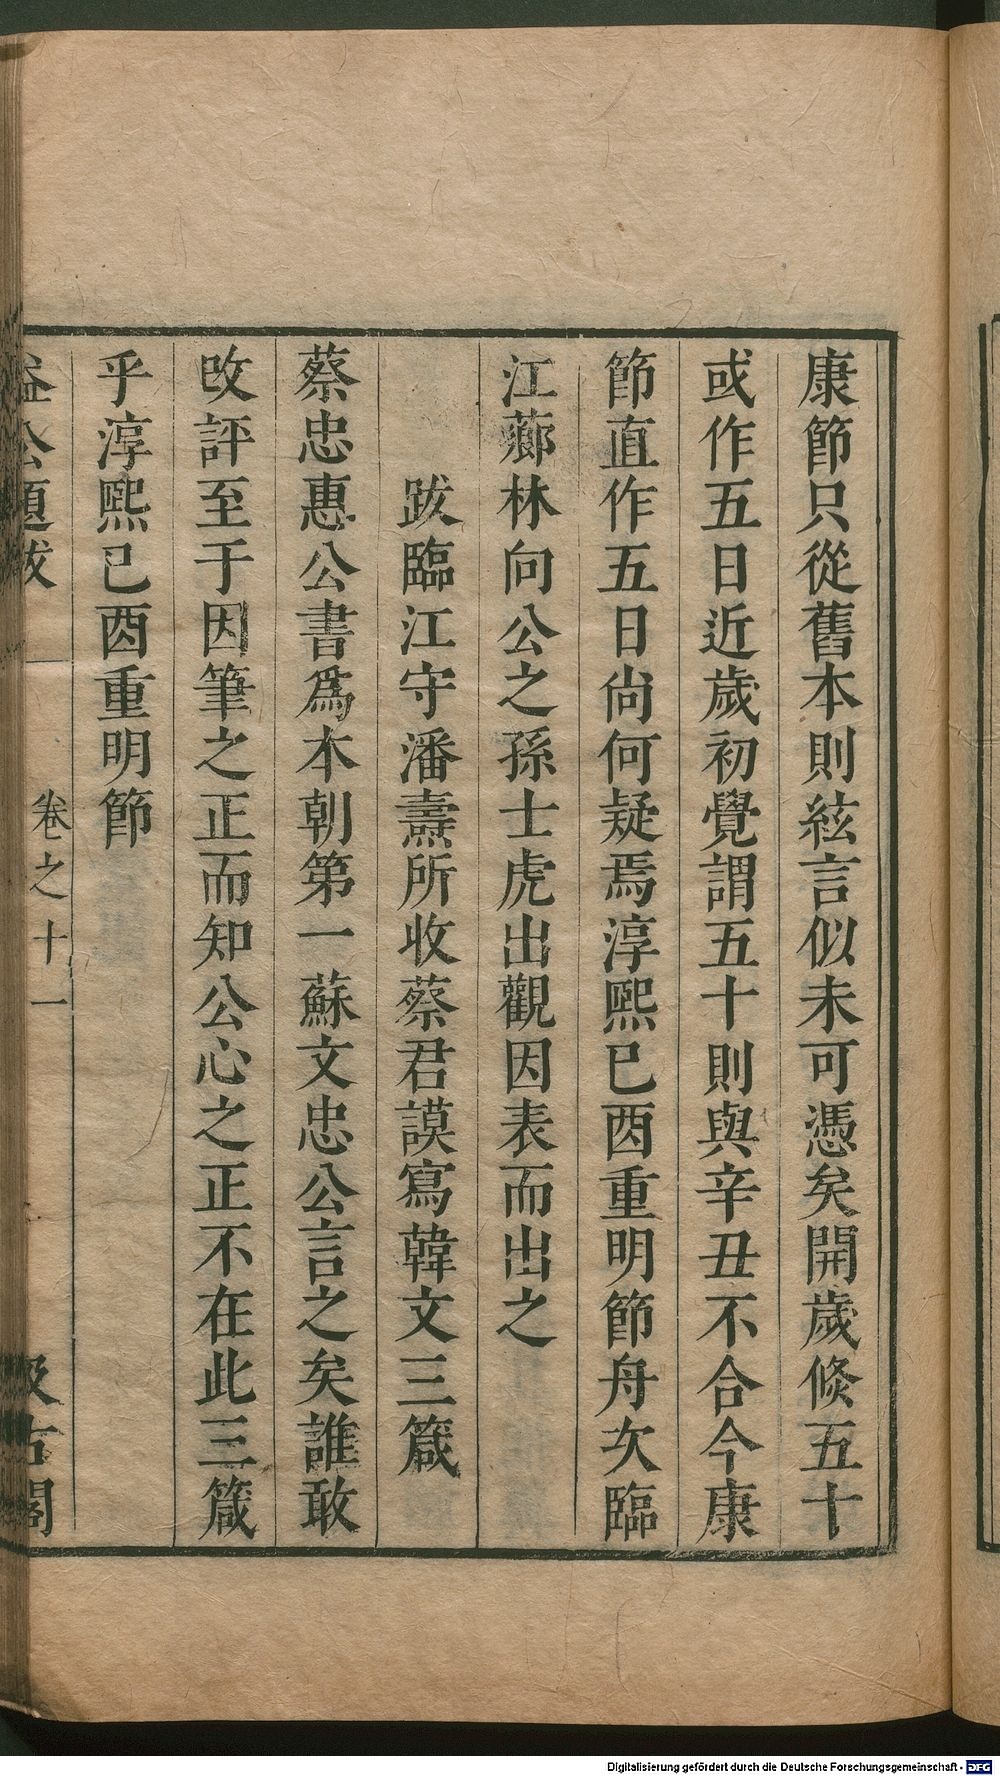 康節只從舊本則絃言似未可憑矣開歲倐五十
或作五日近歲初覺謂五十則與辛丑不合今康
節直作五日尙何疑焉淳熙已酉重明節舟次臨
江薌林向公之孫士虎出觀因表而出之
跋臨江守潘燾所收蔡君謨寫韓文三箴
蔡忠惠公書爲本朝第一蘇文忠公言之矣誰敢
改評至于因筆之正而知公心之正不在此三箴
乎淳熙已酉重明節
益公題跋 卷之十一 汲古閣
Digitalisierung gefördert durch die Deutsche Forschungsgemeinschaft - DFG